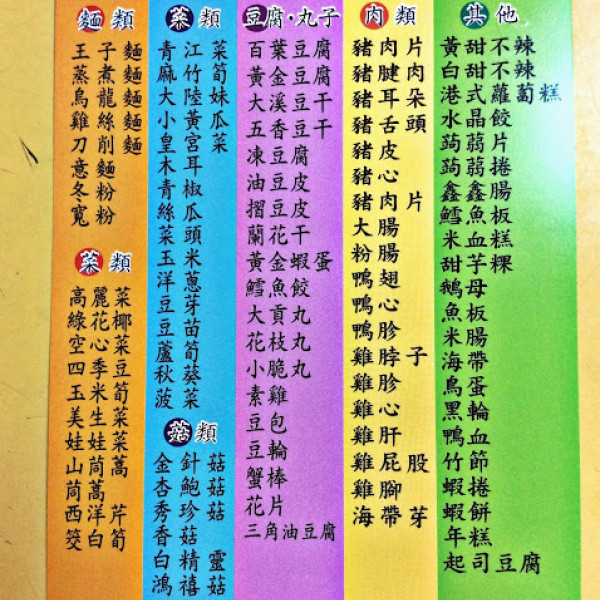 麵類
王子麵
蒸煮麵
烏龍麵
雞絲麵
刀削麵
意麵
冬粉
寬粉
菜類
高麗菜
綠花椰
空心菜
四季豆
玉米筍
美生菜
娃娃菜
山茼蒿
茼蒿
西洋芹
筊白筍
菜類
青江菜
麻竹筍
大陸妹
小黃瓜
皇宮菜
木耳
青椒
絲瓜
菜頭
玉米
洋蔥
豆芽
豆苗
蘆筍
秋葵
菠菜
菇類
金針菇
杏鮑菇
秀珍菇
香菇
白精靈
鴻禧菇
豆腐·丸子
百葉豆腐
黃金豆腐
大溪豆干
五香豆干
凍豆腐
油豆皮
摺豆皮
蘭花干
黃金蝦蛋
鱈魚餃
大貢丸
花枝丸
小脆丸
素雞
豆包
豆輪
蟹棒
花片
三角油豆腐
肉類
豬肉片
豬腱肉
豬耳朵
豬舌頭
豬皮
豬心
豬肉片
大腸
粉腸
鴨翅
鴨心
鴨胗
雞脖子
雞胗
雞心
雞肝
雞屁股
雞腳
海帶芽
其他
黃甜不辣
白甜不辣
港式蘿蔔糕
水晶餃
蒟蒻片
蒟蒻捲
鑫鑫腸
鱈魚板
米血糕
甜芋粿
鵝母
魚板
米腸
海帶
鳥蛋
黑輪
鴨血
竹節
蝦捲
蝦餅
年糕
起司豆腐